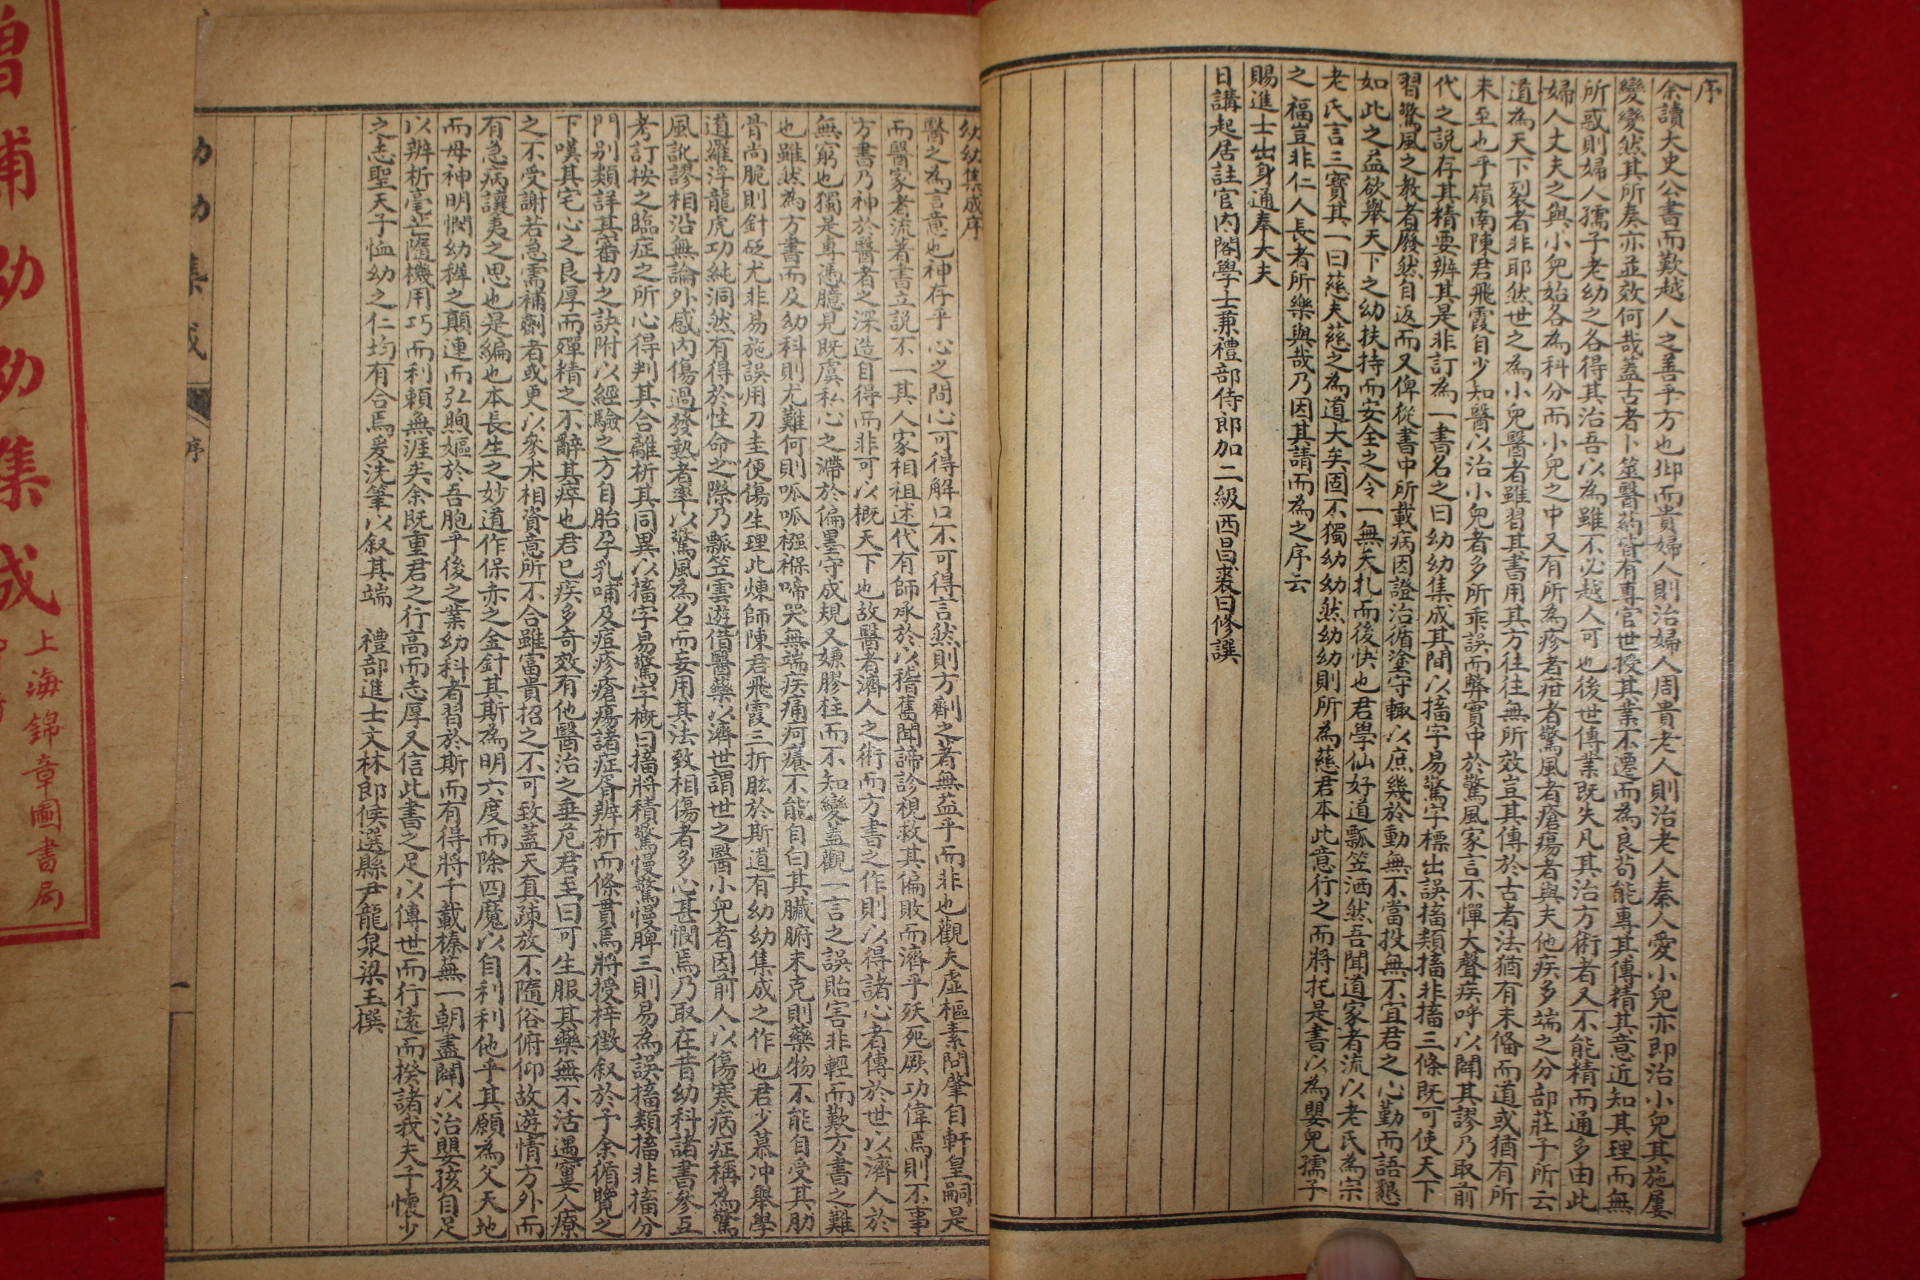 序
余讀大史公書而歎越人之善乎方也邯而貴婦人則治婦人周貴老人則治老人秦人愛小兒亦即治小兒其施屢
變變然其所奏亦並效何哉蓋古者卜筮醫藥皆有專官世授其業不遷而為良苟能專其傳精其意近知其理而無
所惑則婦人孺子老幼之各得其治吾以為雖不必越人可也後世傳業既失凡其治方術者又不能精而通多由此
婦人丈夫之與小兒始各為科分而小兒之中又有所為疹者疳者驚風者瘡瘍者與夫他疾多端之分部莊子所云
道為天下裂者非耶然世之為小兒醫者雖習其書用其方往往無所效豈其傳於古者法猶有未備而道或猶有所
未至也乎嶺南陳君飛霞自少知醫以治小兒者多所乖誤而弊實中於驚風家言不憚大聲疾呼以闢其謬乃取前
代之說存其精要辨其是非訂為一書名之曰幼幼集成其間以搐字易驚字標出誤搐類搐非搐三條既可使天下
習驚風之教者廢然自返而又俾從書中所載病因證治循塗守轍以庶幾於動無不當投無不宜君之心勤而語懇
如此之益欲舉天下之幼扶持而安全之令一無夭札而後快也君學仙好道瓢笠洒然吾聞道家者流以老氏為宗
老氏言三寶其一曰慈夫慈之為道大矣固不獨幼幼然幼幼則所為慈君本此意行之而將托是書以為嬰兒孺子
之福豈非仁人長者所樂與哉乃因其請而為之序云
賜進士出身通奉大夫
日講起居註官內閣學士兼禮部侍郎加二級西昌裘曰修譔
幼幼集成序
醫之為言意也神存乎心之間心可得解口不可得言然則方劑之著無益乎而非也觀夫虛樞素問肇自軒皇嗣是
而醫家者流著書立說不一其人家相祖述代有師承於以稽舊聞諦診視救其偏敗而濟乎殀死厥功偉焉則不事
方書乃神於醫者之深造自得而非可以概天下也故醫者濟人之術而方書之作則以得諸心者傳於世以濟人於
無窮也獨是專憑臆見既虞私心之滯於偏墨守成規又嫌膠柱而不知變蓋觀一言之誤貽害非輕而歎方書之難
也雖然為方書而及幼科則尤難何則呱呱襁褓啼哭無端疾痛疴癢不能自白其臟腑未克則藥物不能自受其肋
骨尚脆則針砭尤非易施誤用刀圭便傷生理此煉師陳君飛霞三折肱於斯道有幼幼集成之作也君少慕冲舉學
道羅浮龍虎功純洞然有得於性命之際乃瓢笠雲遊借醫藥以濟世謂世之醫小兒者因前人以傷寒病症稱為驚
風訛謬相沿無論外感內傷過發熱者率以驚風為名而妄用其法致相傷者多心甚憫焉乃取在昔幼科諸書參互
考訂按之臨症之所心得判其合離析其同異以搐字易驚字概曰搐將積驚慢驚慢脾三則易為誤搐類搐非搐分
門別類詳其審切之訣附以經驗之方自胎孕乳哺及痘疹瘡瘍諸症胥辨析而條貫焉將授梓徵叙於予余循覽之
下嘆其宅心之良厚而殫精之不辭其瘁也君已疾多奇效有他醫治之垂危君至曰可生服其藥無不活遇窶人療
之不受謝若急需補劑者或更以參术相資意所不合雖富貴招之不可致蓋天真疎放不隨俗俯仰故遊情方外而
有急病讓夷之思也是編也本長生之妙道作保赤之金針其斯為明六度而除四魔以自利利他乎其願為父天地
而母神明憫幼穉之顛連而弘煦嫗於吾胞乎後之業幼科者習於斯而有得將千載榛蕪一朝盡闢以治嬰孩自足
以辨析毫芒隨機用巧而利賴無涯矣余既重君之行高而志厚又信此書之足以傳世而行遠而揆諸我夫子懷少
之志聖天子恤幼之仁均有合焉爰洗筆以叙其端　禮部進士文林郎候選縣尹龍泉梁玉撰
幼幼集成　序　一
增補幼幼集成
上海錦章圖書局